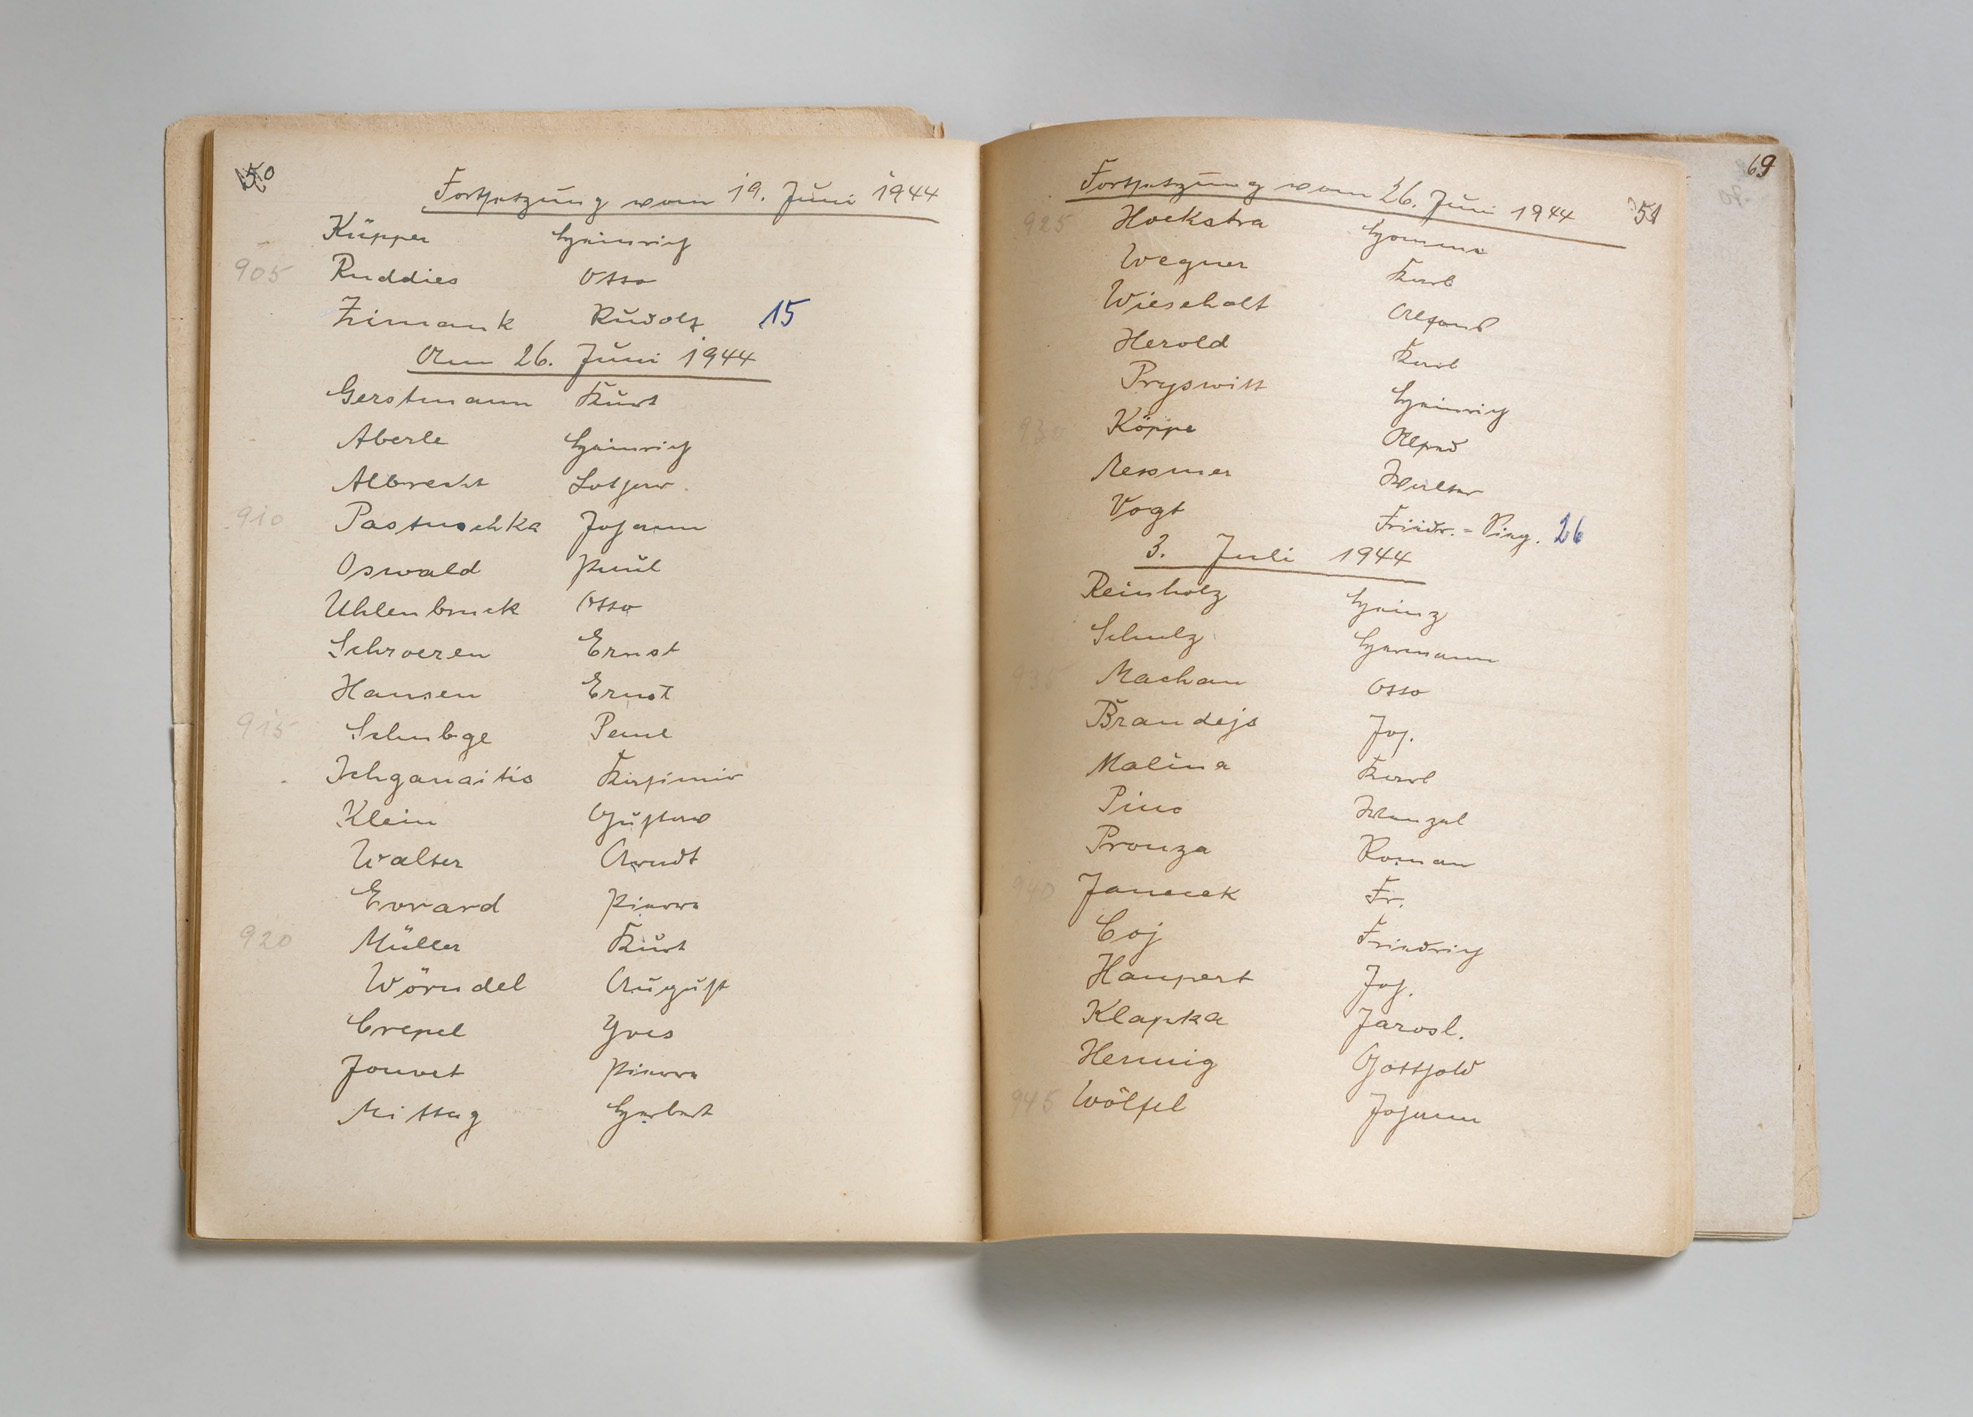 50
Fortsetzung vom 19. Juni 1944
Küpper Heinrich
905 Ruddies Otto
Zimank Rudolf 15
Am 26. Juni 1944
Gerstmann Kurt
Aberle Heinrich
Albrecht Lothar
910 Pastuschka Johann
Oswald Paul
Uhlenbruck Otto
Schroeren Ernst
Hansen Ernst
915 Schubge Paul
Ischganaitis Kasimir
Klein Gustav
Walter Arndt
Evrard Pierre
920 Müller Kurt
Wörndel August
Crepel Yves
Jouvet Pierre
Mittag Herbert
69
Fortsetzung vom 26. Juni 1944 51
925 Hoekstra Homme
Wegner Karl
Wieseholt Alfons
Herold Karl
Pryswitt Heinrich
930 Köppe Alfred
Messmer Walter
Vogt Friedr. = 26
3. Juli 1944
Reinholz Heinz
Schulz Hermann
935 Machan Otto
Brandejs Jos.
Malina Karl
Pino Wenzel
Prouza Roman
940 Janecek Fr.
Coj Friedrich
Haupert Joh.
Klapka Jarosl.
Hennig Gotthold
945 Wölfel Johann